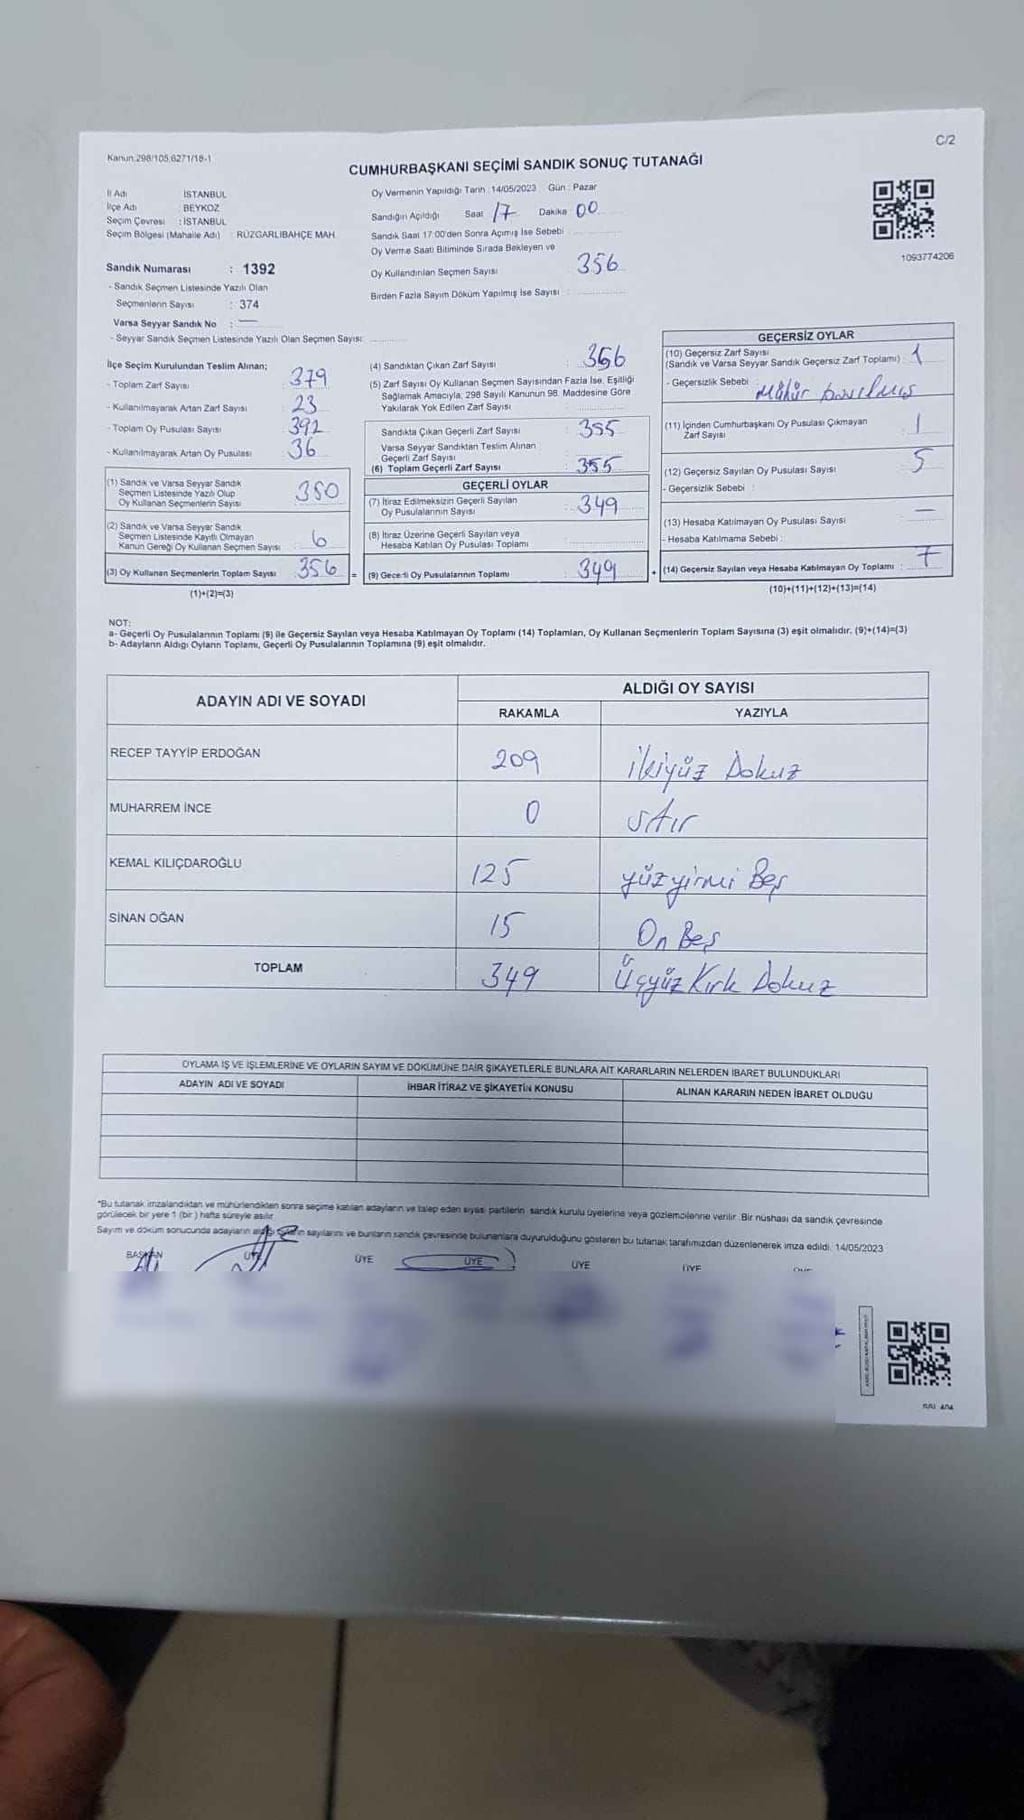 Kanun.298/105,6271/18-1
C/2
CUMHURBAŞKANI SEÇİMİ SANDIK SONUÇ TUTANAĞI
İl Adı İSTANBUL
İlçe Adı BEYKOZ
Seçim Çevresi : İSTANBUL
Seçim Bölgesi (Mahalle Adı) : RÜZGARLIBAHÇE MAH.
Sandık Numarası : 1392
- Sandık Seçmen Listesinde Yazılı Olan
Seçmenlerin Sayısı : 374
Varsa Seyyar Sandık No : —
- Seyyar Sandık Seçmen Listesinde Yazılı Olan Seçmen Sayısı:
Oy Vermenin Yapıldığı Tarih : 14/05/2023 Gün : Pazar
Sandığın Açıldığı Saat 17 Dakika 00
Sandık Saat 17:00'den Sonra Açımış İse Sebebi :
Oy Verme Saati Bitiminde Sırada Bekleyen ve
Oy Kullandırılan Seçmen Sayısı 356
Birden Fazla Sayım Döküm Yapılmış İse Sayısı :
1093774206
İlçe Seçim Kurulundan Teslim Alınan;
- Toplam Zarf Sayısı 379
- Kullanılmayarak Artan Zarf Sayısı 23
- Toplam Oy Pusulası Sayısı 392
- Kullanılmayarak Artan Oy Pusulası 36
(1) Sandık ve Varsa Seyyar Sandık
Seçmen Listesinde Yazılı Olup
Oy Kullanan Seçmenlerin Sayısı 350
(2) Sandık ve Varsa Seyyar Sandık
Seçmen Listesinde Kayıtlı Olmayan
Kanun Gereği Oy Kullanan Seçmen Sayısı 6
(3) Oy Kullanan Seçmenlerin Toplam Sayısı 356 =
(1)+(2)=(3)
(4) Sandıktan Çıkan Zarf Sayısı : 356
(5) Zarf Sayısı Oy Kullanan Seçmen Sayısından Fazla İse, Eşitliği
Sağlamak Amacıyla, 298 Sayılı Kanunun 98. Maddesine Göre
Yakılarak Yok Edilen Zarf Sayısı :
Sandıkta Çıkan Geçerli Zarf Sayısı : 355
Varsa Seyyar Sandıktan Teslim Alınan
Geçerli Zarf Sayısı
(6) Toplam Geçerli Zarf Sayısı : 355
GEÇERLİ OYLAR
(7) İtiraz Edilmeksizin Geçerli Sayılan
Oy Pusulalarının Sayısı : 349
(8) İtiraz Üzerine Geçerli Sayılan veya
Hesaba Katılan Oy Pusulası Toplamı :
(9) Geçerli Oy Pusulalarının Toplamı : 349 +
GEÇERSİZ OYLAR
(10) Geçersiz Zarf Sayısı
(Sandık ve Varsa Seyyar Sandık Geçersiz Zarf Toplamı) : 1
- Geçersizlik Sebebi : Mühür basılmış
(11) İçinden Cumhurbaşkanı Oy Pusulası Çıkmayan
Zarf Sayısı 1
(12) Geçersiz Sayılan Oy Pusulası Sayısı : 5
- Geçersizlik Sebebi :
(13) Hesaba Katılmayan Oy Pusulası Sayısı : —
- Hesaba Katılmama Sebebi :
(14) Geçersiz Sayılan veya Hesaba Katılmayan Oy Toplamı : 7
(10)+(11)+(12)+(13)=(14)
NOT:
a- Geçerli Oy Pusulalarının Toplamı (9) ile Geçersiz Sayılan veya Hesaba Katılmayan Oy Toplamı (14) Toplamları, Oy Kullanan Seçmenlerin Toplam Sayısına (3) eşit olmalıdır. (9)+(14)=(3)
b- Adayların Aldığı Oyların Toplamı, Geçerli Oy Pusulalarının Toplamına (9) eşit olmalıdır.
ADAYIN ADI VE SOYADI
ALDIĞI OY SAYISI
RAKAMLA YAZIYLA
RECEP TAYYİP ERDOĞAN 209 ikiyüz Dokuz
MUHARREM İNCE 0 sıfır
KEMAL KILIÇDAROĞLU 125 yüzyirmi Beş
SİNAN OĞAN 15 On Beş
TOPLAM 349 Üçyüz Kırk Dokuz
OYLAMA İŞ VE İŞLEMLERİNE VE OYLARIN SAYIM VE DÖKÜMÜNE DAİR ŞİKAYETLERLE BUNLARA AİT KARARLARIN NELERDEN İBARET BULUNDUKLARI
ADAYIN ADI VE SOYADI İHBAR İTİRAZ VE ŞİKAYETİN KONUSU ALINAN KARARIN NEDEN İBARET OLDUĞU
*Bu tutanak imzalandıktan ve mühürlendikten sonra seçime katılan adayların ve talep eden siyasi partilerin sandık kurulu üyelerine veya gözlemcilerine verilir. Bir nüshası da sandık çevresinde
görülecek bir yere 1 (bir) hafta süreyle asılır.
Sayım ve döküm sonucunda adayların aldığı oyların sayılarını ve bunların sandık çevresinde bulunanlara duyurulduğunu gösteren bu tutanak tarafımızdan düzenlenerek imza edildi. 14/05/2023
BAŞKAN ÜYE ÜYE ÜYE ÜYE ÜYE ÜYE